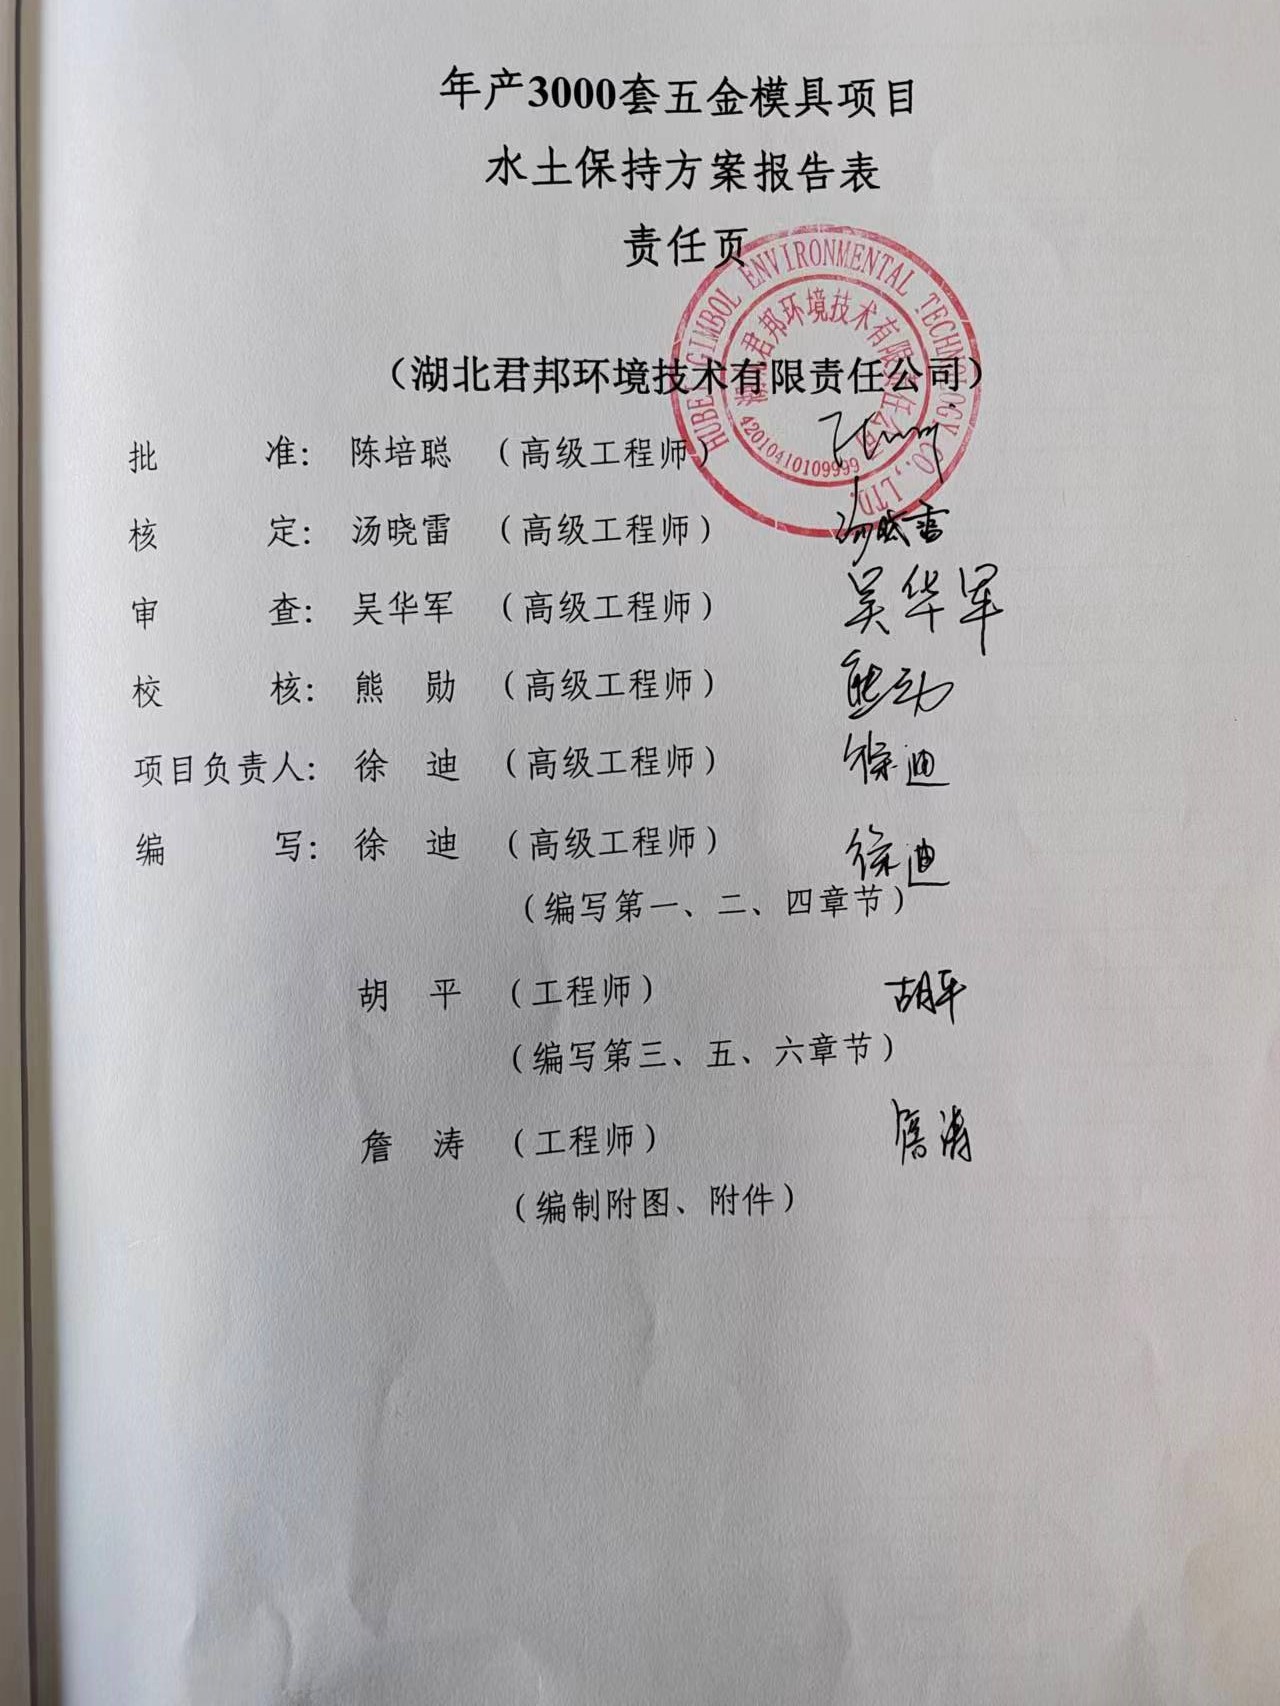 年产3000套五金模具项目
水土保持方案报告表
责任页
HUBEI GIMBOL ENVIRONMENTAL TECHNOLOGY CO., LTD.
湖北君邦环境技术有限责任公司
42010410109999
（湖北君邦环境技术有限责任公司）
批 准： 陈培聪 （高级工程师）
核 定： 汤晓雷 （高级工程师） 汤晓雷
审 查： 吴华军 （高级工程师） 吴华军
校 核： 熊 勋 （高级工程师） 熊勋
项目负责人： 徐 迪 （高级工程师） 徐迪
编 写： 徐 迪 （高级工程师） 徐迪
（编写第一、二、四章节）
胡 平 （工程师） 胡平
（编写第三、五、六章节）
詹 涛 （工程师） 詹涛
（编制附图、附件）